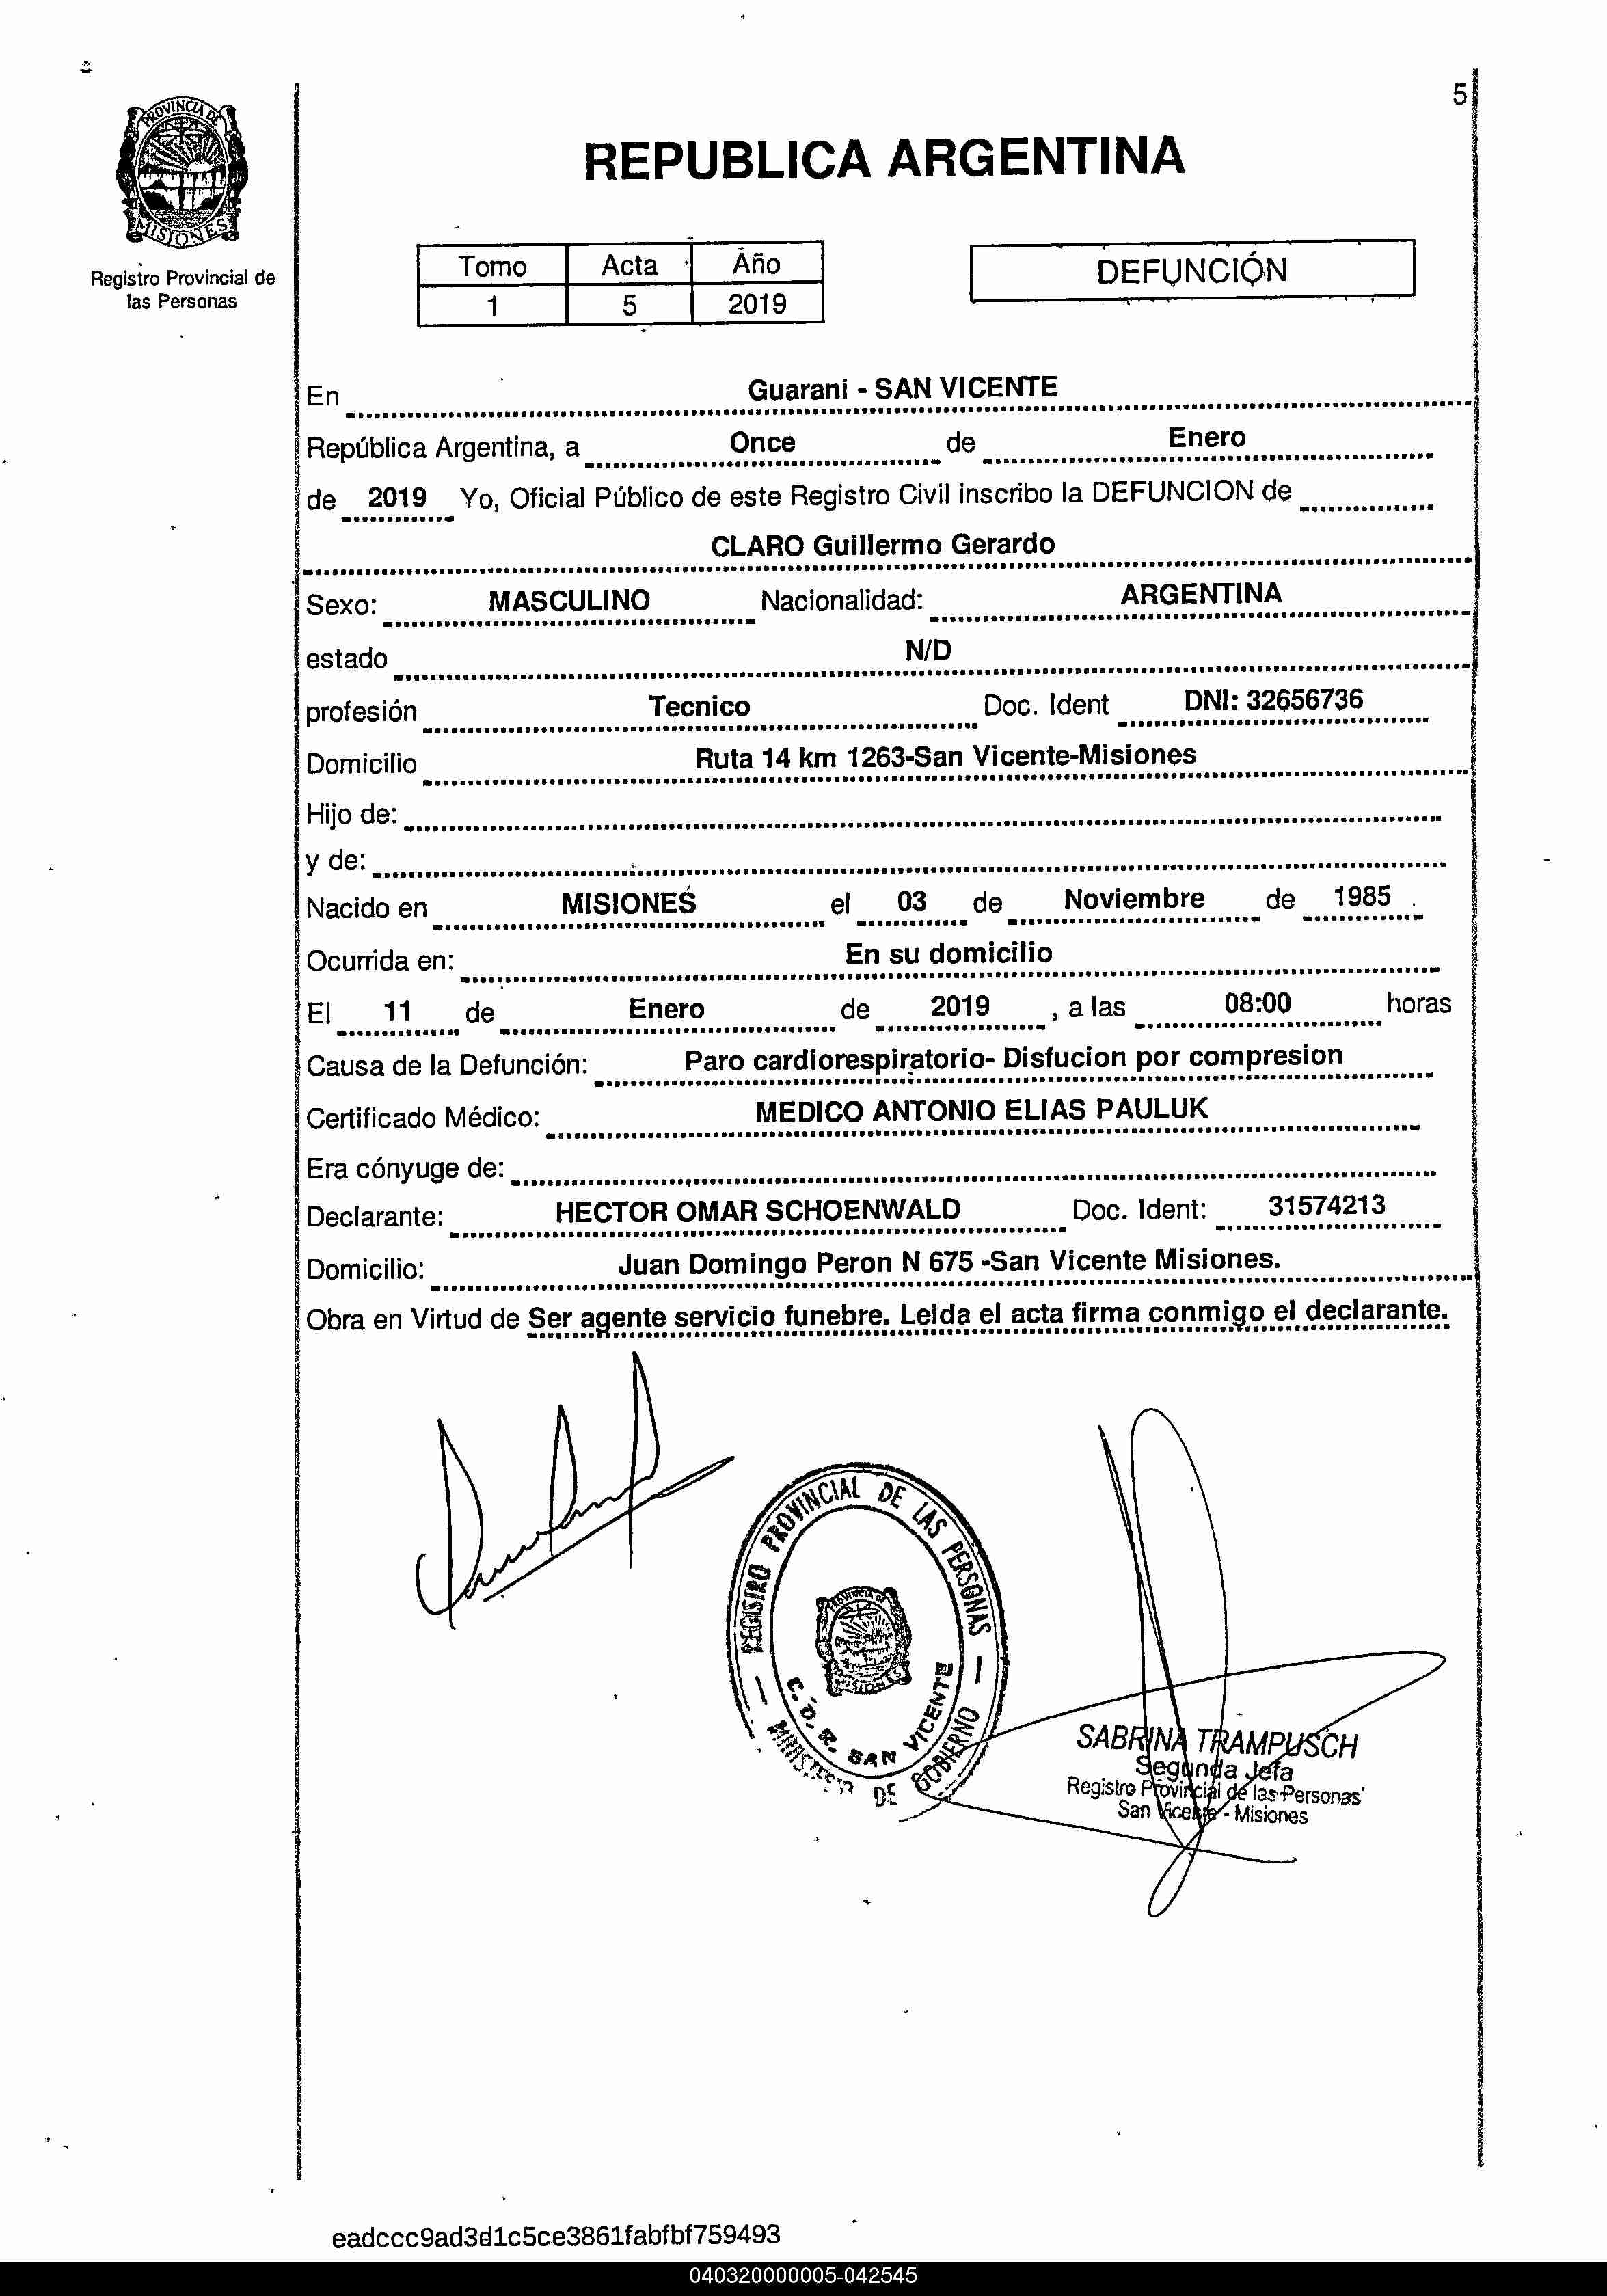 5
PROVINCIA DE
MISIONES
Registro Provincial de
las Personas
REPUBLICA ARGENTINA
Tomo Acta Año
1 5 2019
DEFUNCIÓN
En Guarani - SAN VICENTE
República Argentina, a Once de Enero
de 2019 Yo, Oficial Público de este Registro Civil inscribo la DEFUNCION de
CLARO Guillermo Gerardo
Sexo: MASCULINO Nacionalidad: ARGENTINA
estado N/D
profesión Tecnico Doc. Ident DNI: 32656736
Domicilio Ruta 14 km 1263-San Vicente-Misiones
Hijo de:
y de:
Nacido en MISIONES el 03 de Noviembre de 1985 .
Ocurrida en: En su domicilio
El 11 de Enero de 2019 , a las 08:00 horas
Causa de la Defunción: Paro cardiorespiratorio- Disfucion por compresion
Certificado Médico: MEDICO ANTONIO ELIAS PAULUK
Era cónyuge de:
Declarante: HECTOR OMAR SCHOENWALD Doc. Ident: 31574213
Domicilio: Juan Domingo Peron N 675 -San Vicente Misiones.
Obra en Virtud de Ser agente servicio funebre. Leida el acta firma conmigo el declarante.
REGISTRO PROVINCIAL DE LAS PERSONAS
PROVINCIA DE
MISIONES
C. D. R. SAN VICENTE
MINISTERIO DE GOBIERNO
SABRINA TRAMPUSCH
Segunda Jefa
Registro Provincial de las Personas
San Vicente - Misiones
eadccc9ad3d1c5ce3861fabfbf759493
040320000005-042545